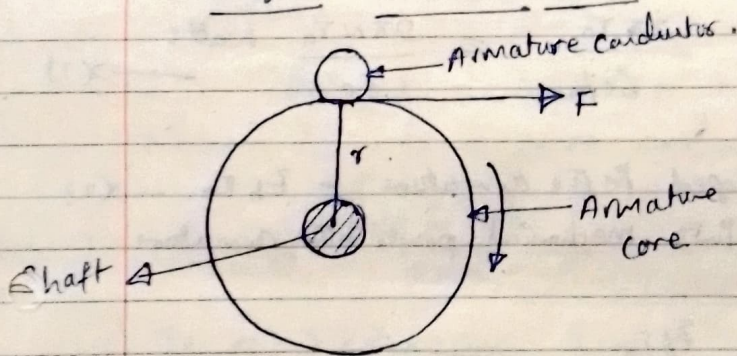 Armature conductor.
F
r
Armature
core
Shaft